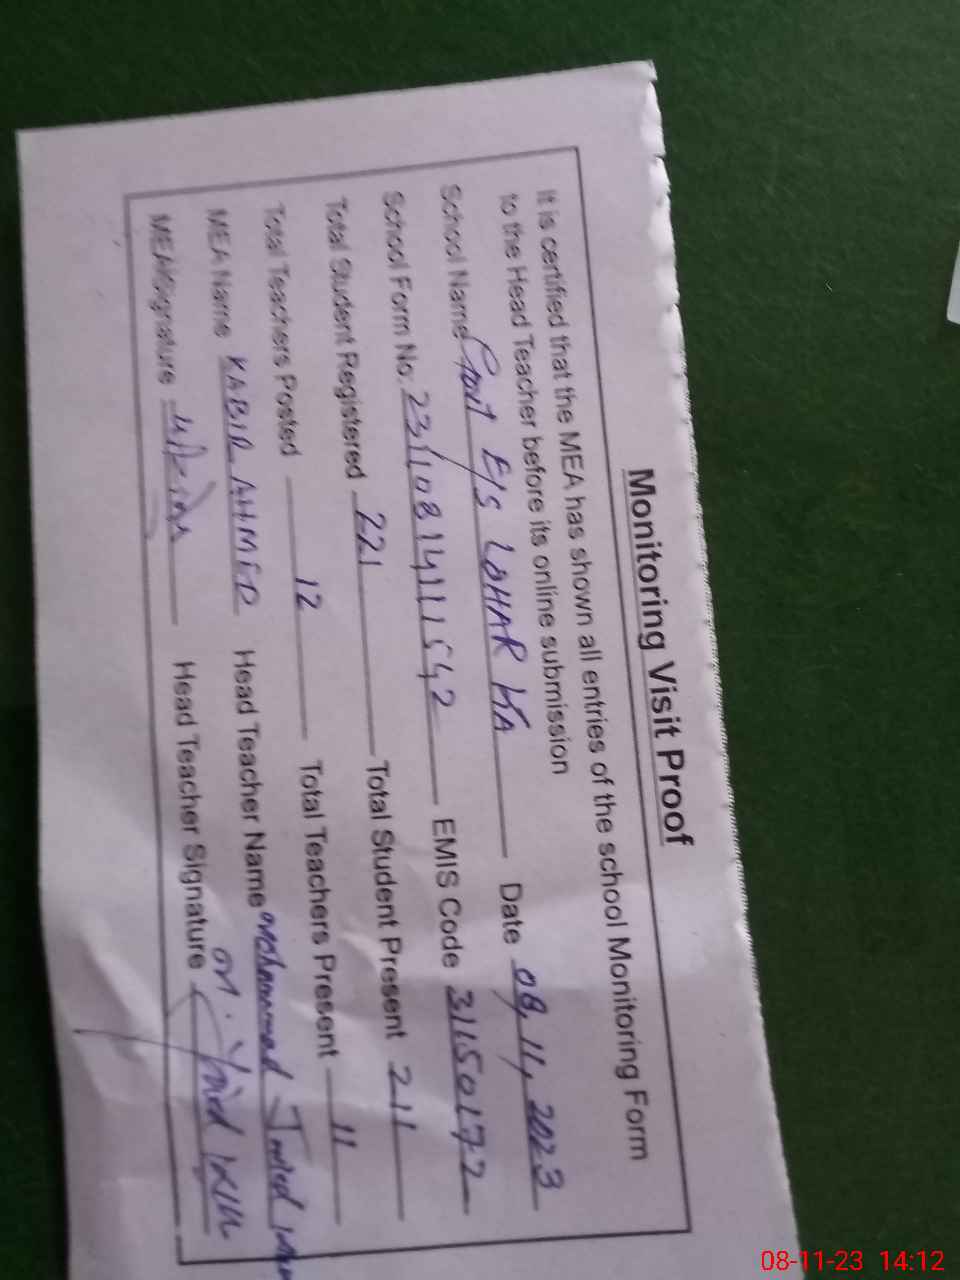 Monitoring Visit Proof
It is certified that the MEA has shown all entries of the school Monitoring Form
to the Head Teacher before its online submission
School Name Govt E/S LOHAR KA Date 08, 11, 2023
School Form No: 231108141111542 EMIS Code 31150172
Total Student Registered 221 Total Student Present 211
Total Teachers Posted 12 Total Teachers Present 11
MEA Name KABIR AHMED Head Teacher Name Mohammad
MEA Signature Head Teacher Signature
08-11-23 14:12